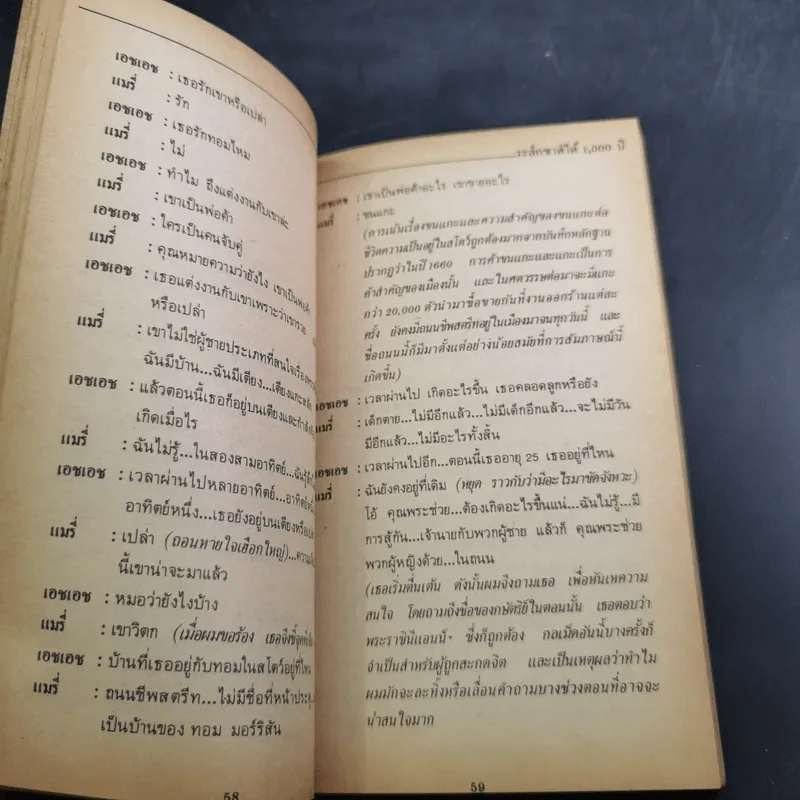 เอชเอช : เธอรักเขาหรือเปล่า
แมรี่ : รัก
เอชเอช : เธอรักทอมไหม
แมรี่ : ไม่
เอชเอช : ทำไม ถึงแต่งงานกับเขาล่ะ
แมรี่ : เขาเป็นพ่อค้า
เอชเอช : ใครเป็นคนจับคู่
แมรี่ : คุณหมายความว่ายังไง เขาเป็นพ่อค้า
เอชเอช : เธอแต่งงานกับเขาเพราะว่าเขารวย
หรือเปล่า
แมรี่ : เขาไม่ใช่ผู้ชายประเภทที่สนใจเรื่อง
ฉันมีบ้าน...ฉันมีเตียง...เตียง
เอชเอช : แล้วตอนนี้เธอก็อยู่บนเตียงและกำลัง
เกิดเมื่อไร
แมรี่ : ฉันไม่รู้...ในสองสามอาทิตย์...ฉันรู้สึก
เอชเอช : เวลาผ่านไปหลายอาทิตย์...อาทิตย์
อาทิตย์หนึ่ง...เธอยังอยู่บนเตียงหรือเปล่า
แมรี่ : เปล่า (ถอนหายใจเฮือกใหญ่)
นี้เขาน่าจะมาแล้ว
เอชเอช : หมอว่ายังไงบ้าง
แมรี่ : เขาวิตก (เมื่อผมขอร้อง เธอจึง
เอชเอช : บ้านที่เธออยู่กับทอมในสโตว์อยู่ที่ไหน
แมรี่ : ถนนชีพสตรีท...ไม่มีชื่อที่หน้าประตู
เป็นบ้านของ ทอม มอร์ริสัน
58
ระลึกชาติได้ 1,000 ปี
เอชเอช : เขาเป็นพ่อค้าอะไร เขาขายอะไร
แมรี่ : ขนแกะ
(การเน้นเรื่องขนแกะและความสำคัญของขนแกะต่อ
ชีวิตความเป็นอยู่ในสโตว์ถูกต้องมากจากบันทึกหลักฐาน
ปรากฏว่าในปี 1660 การค้าขนแกะและแกะเป็นการ
ค้าสำคัญของเมืองนั้น และในศตวรรษต่อมาจะมีแกะ
กว่า 20,000 ตัวนำมาซื้อขายกันที่งานออกร้านแต่ละ
ครั้ง ยังคงมีถนนชีพสตรีทอยู่ในเมืองมาจนทุกวันนี้ และ
ชื่อถนนนี้ก็มีมาตั้งแต่อย่างน้อยสมัยที่การสัมภาษณ์นี้
เกิดขึ้น)
เอชเอช : เวลาผ่านไป เกิดอะไรขึ้น เธอคลอดลูกหรือยัง
แมรี่ : เด็กตาย...ไม่มีอีกแล้ว...ไม่มีเด็กอีกแล้ว...จะไม่มีวัน
มีอีกแล้ว...ไม่มีอะไรทั้งสิ้น
เอชเอช : เวลาผ่านไปอีก...ตอนนี้เธออายุ 25 เธออยู่ที่ไหน
แมรี่ : ฉันยังคงอยู่ที่เดิม (หยุด ราวกับว่ามีอะไรมาขัดจังหวะ)
โอ้ คุณพระช่วย...ต้องเกิดอะไรขึ้นแน่...ฉันไม่รู้...มี
การสู้กัน...เจ้านายกับพวกผู้ชาย แล้วก็ คุณพระช่วย
พวกผู้หญิงด้วย...ในถนน
(เธอเริ่มตื่นเต้น ดังนั้นผมจึงถามเธอ เพื่อหันเหความ
สนใจ โดยถามถึงชื่อของกษัตริย์ในตอนนั้น เธอตอบว่า
พระราชินีแอนน์- ซึ่งก็ถูกต้อง กลเม็ดอันนี้บางครั้งก็
จำเป็นสำหรับผู้ถูกสะกดจิต และเป็นเหตุผลว่าทำไม
ผมมักจะละทิ้งหรือเลื่อนคำถามบางช่วงตอนที่อาจจะ
น่าสนใจมาก
59